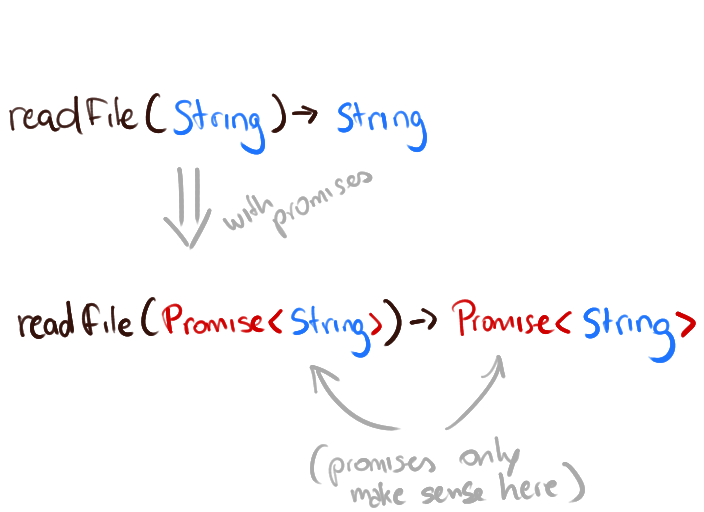 readFile(String) → String
with
promises
readFile(Promise<String>) → Promise<String>
(promises only
make sense here)